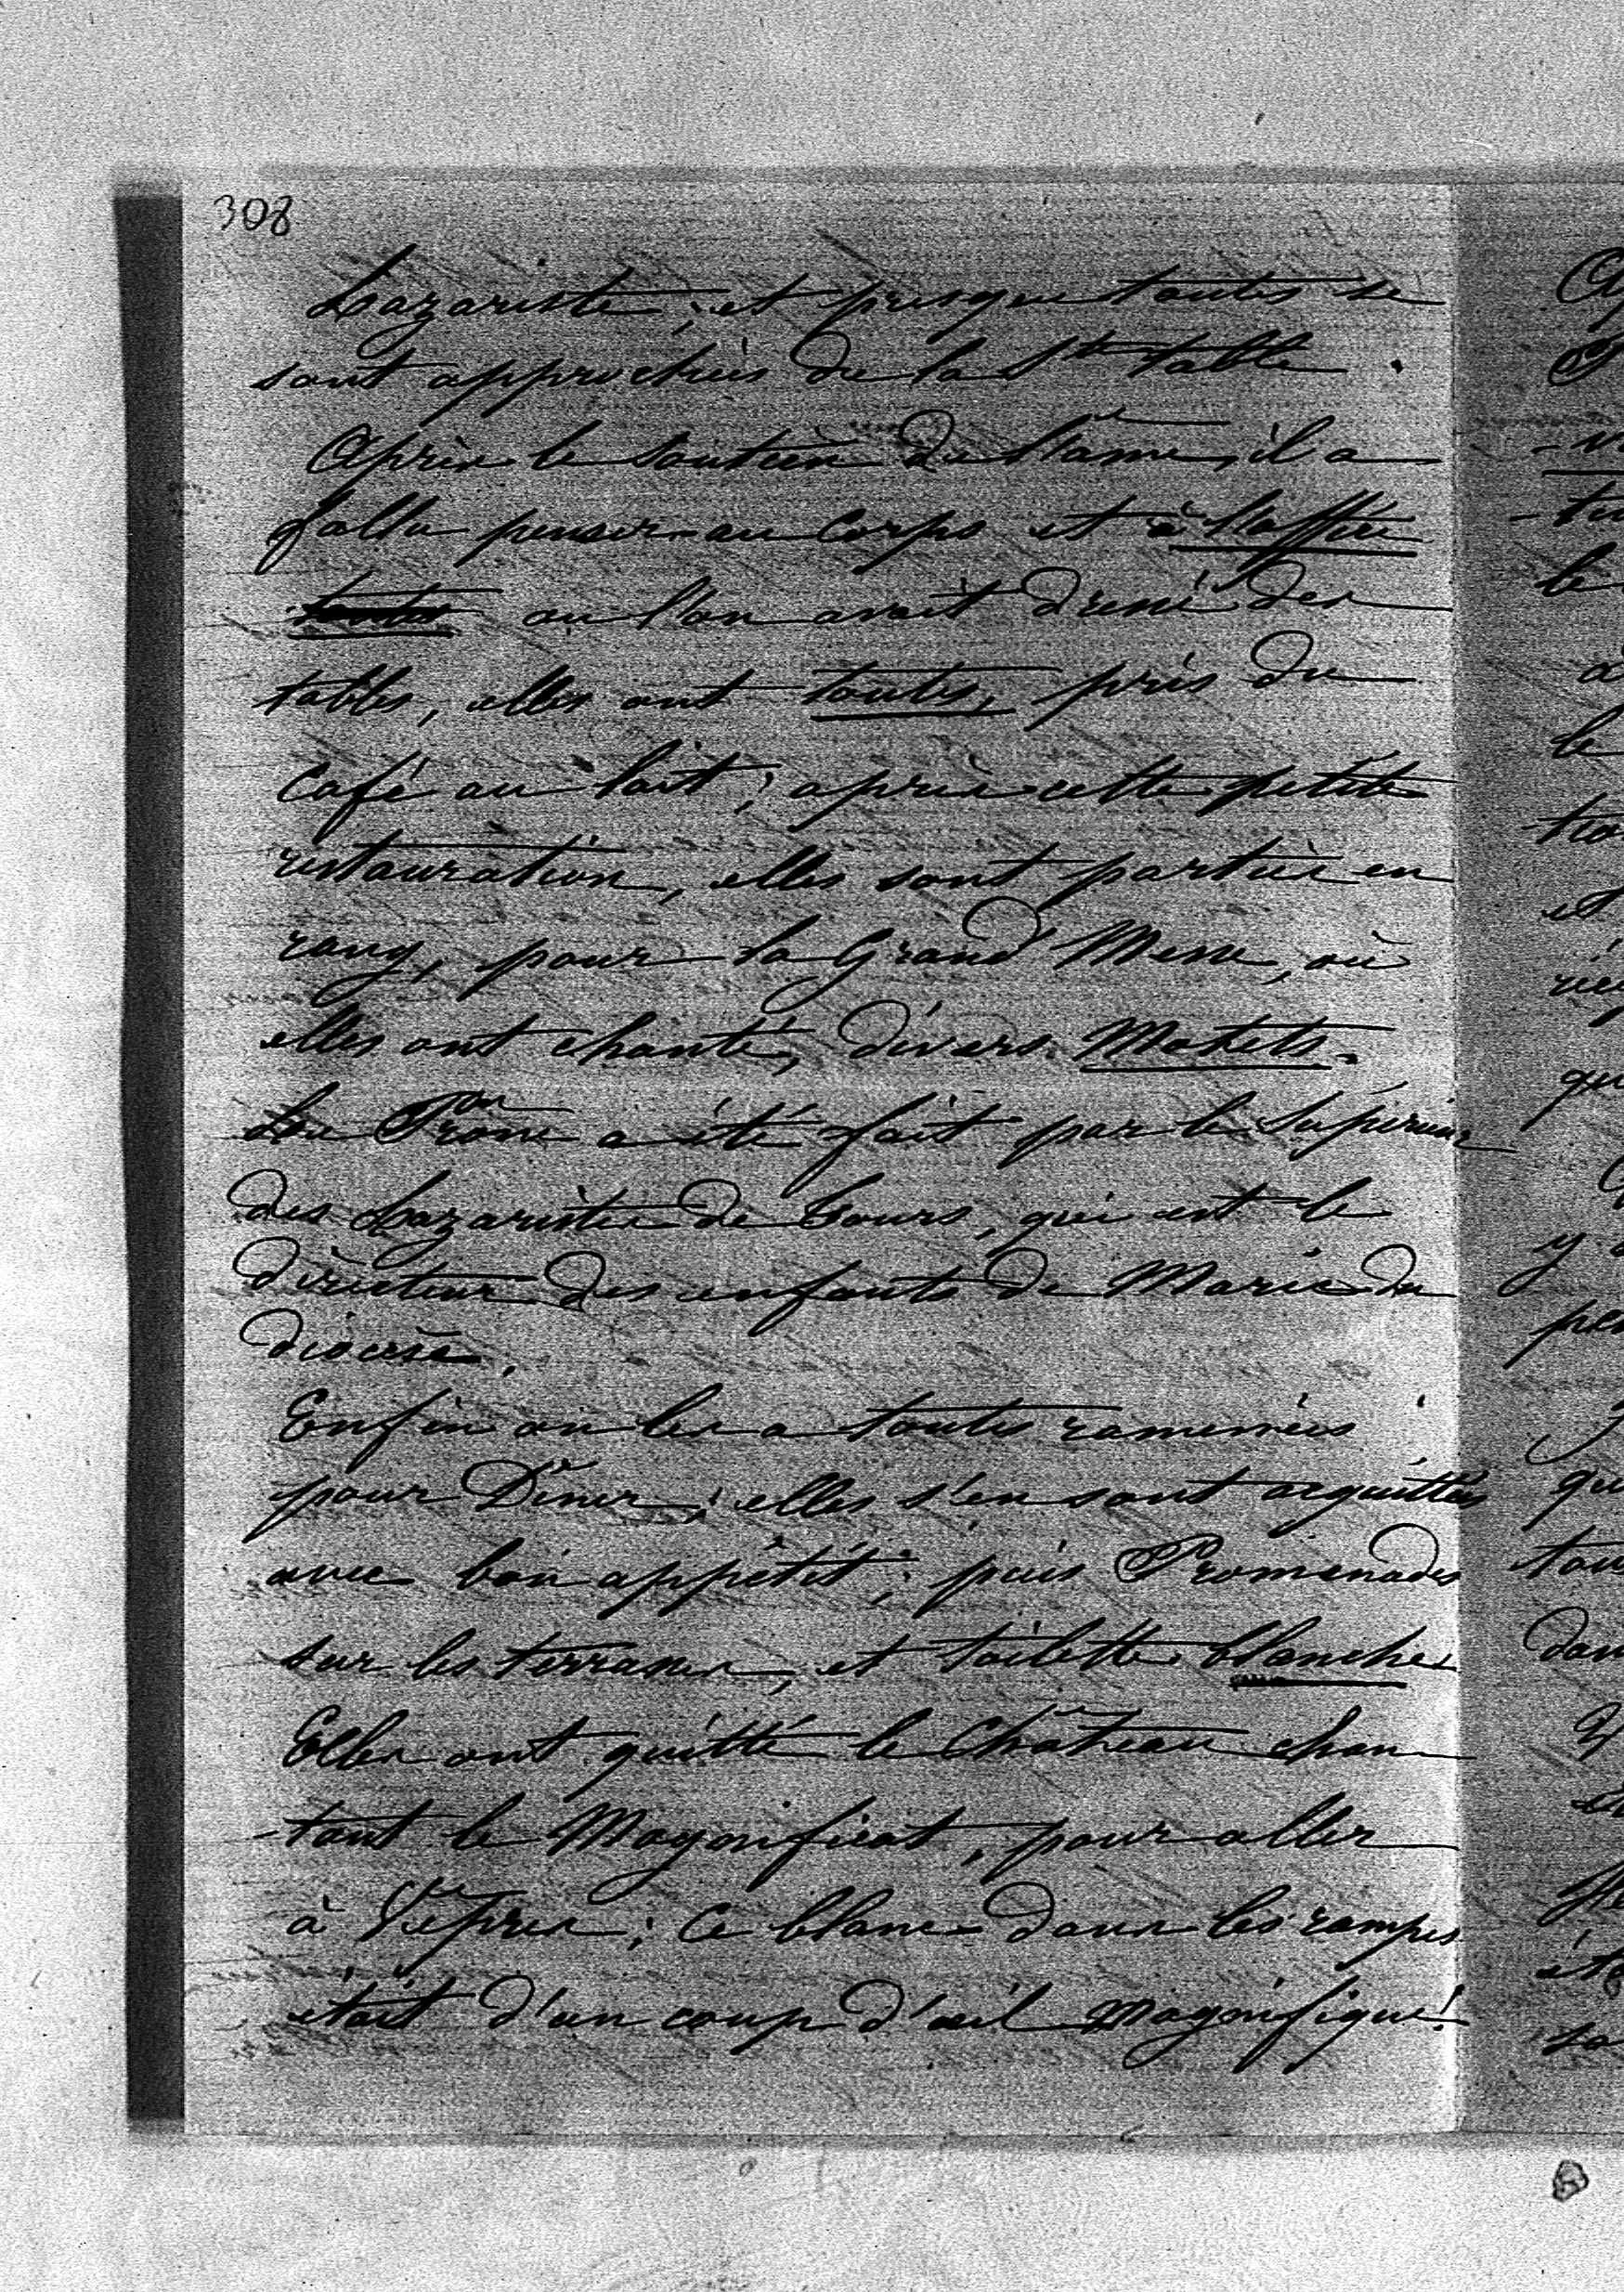 308
Lazariste ; et presque toutes se
sont approchées de la Ste table .
Après le soutien de l'âme, il a
fallu penser au corps et à
ou l'on avait dressé des
tables, elles ont toutes, pris du
Café au lait ; après cette petite
restauration, elles sont parties en
rang, pour la Grand Messe, où
elles ont chanté, divers Motets.
Le Prone a été fait par le Supérieur
des Lazaristes de Tours, qui est le
directeur des enfants de Marie du
diocèse.
Enfin on les a toutes ramenées
pour Dîner ; elles s'en sont acquittées
avec bon appétit ; puis Promenades
sur les terrasses, et toilette blanche
Elles ont quitté le Château chan
-tant le Magnificat, pour aller
à Vêpres ; Ce blanc dans les rampes
était d'un coup d'œil Magnifique !